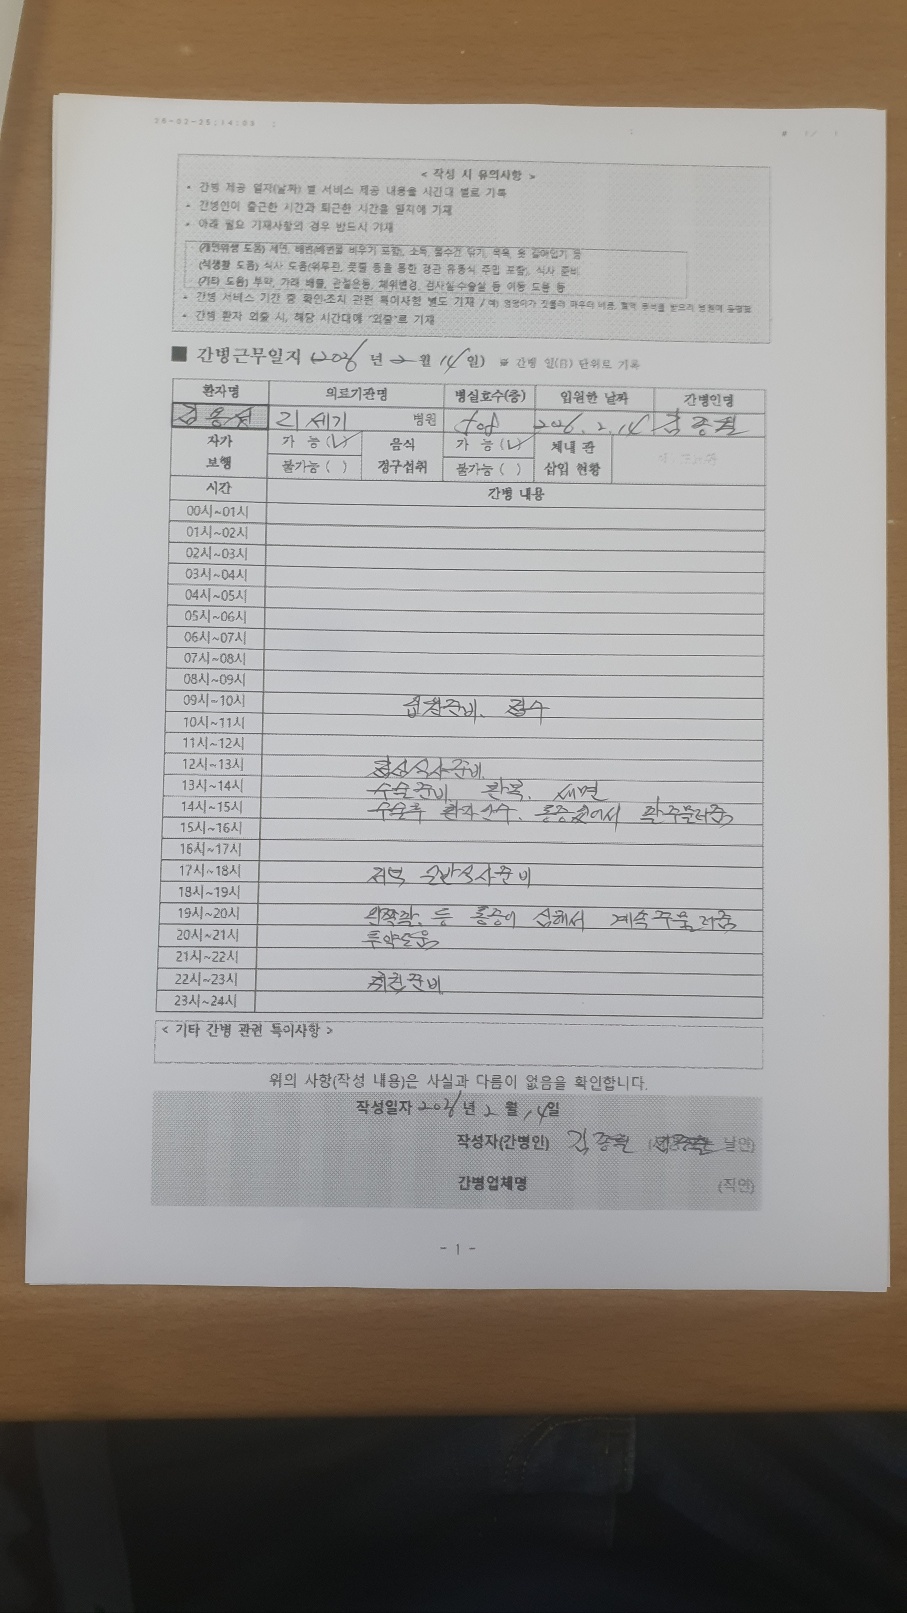 26-02-25;14:08 ;
# 1/ 1
< 작성 시 유의사항 >
• 간병 제공 일자(날짜) 별 서비스 제공 내용을 시간대 별로 기록
• 간병인이 출근한 시간과 퇴근한 시간을 일지에 기재
• 아래 필요 기재사항의 경우 반드시 기재
(개인위생 도움) 세면, 배변(배변물 비우기 포함), 소독, 물수건 닦기, 목욕, 옷 갈아입기 등
(식생활 도움) 식사 도움(위루관, 콧줄 등을 통한 경관 유동식 주입 포함), 식사 준비
(기타 도움) 투약, 가래 배출, 관절운동, 체위변경, 검사실·수술실 등 이동 도움 등
• 간병 서비스 기간 중 확인·조치 관련 특이사항 별도 기재
• 간병 환자 외출 시, 해당 시간대에 "외출"로 기재
■ 간병근무일지 (2026 년 2 월 14 일) ※ 간병 일(日) 단위로 기록
환자명 의료기관명 병실호수(층) 입원한 날짜 간병인명
김용성 리세기 병원 2026. 2. 14 김종필
자가 보행 가 능 (✓) 불가능 ( ) 음식 경구섭취 가 능 (✓) 불가능 ( ) 체내 관 삽입 현황
시간 간병 내용
00시~01시
01시~02시
02시~03시
03시~04시
04시~05시
05시~06시
06시~07시
07시~08시
08시~09시
09시~10시 입원준비. 접수
10시~11시
11시~12시
12시~13시 점심식사준비.
13시~14시 수술준비. 환복. 세면
14시~15시 수술후 환자 통증있어서 주물러줌
15시~16시
16시~17시
17시~18시 저녁 식사준비
18시~19시
19시~20시 등 통증이 심해서 계속 주물러줌
20시~21시 투약도움
21시~22시
22시~23시 취침준비
23시~24시
< 기타 간병 관련 특이사항 >
위의 사항(작성 내용)은 사실과 다름이 없음을 확인합니다.
작성일자 2026년 2 월 14일
작성자(간병인) 김종필 날인)
간병업체명 (직인)
- 1 -